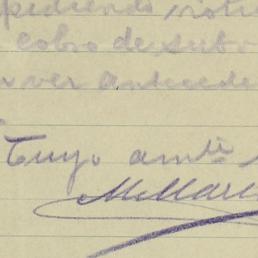 pidiendo noti
cobro de subv
ver antecede
Tuyo amte
M. Mar